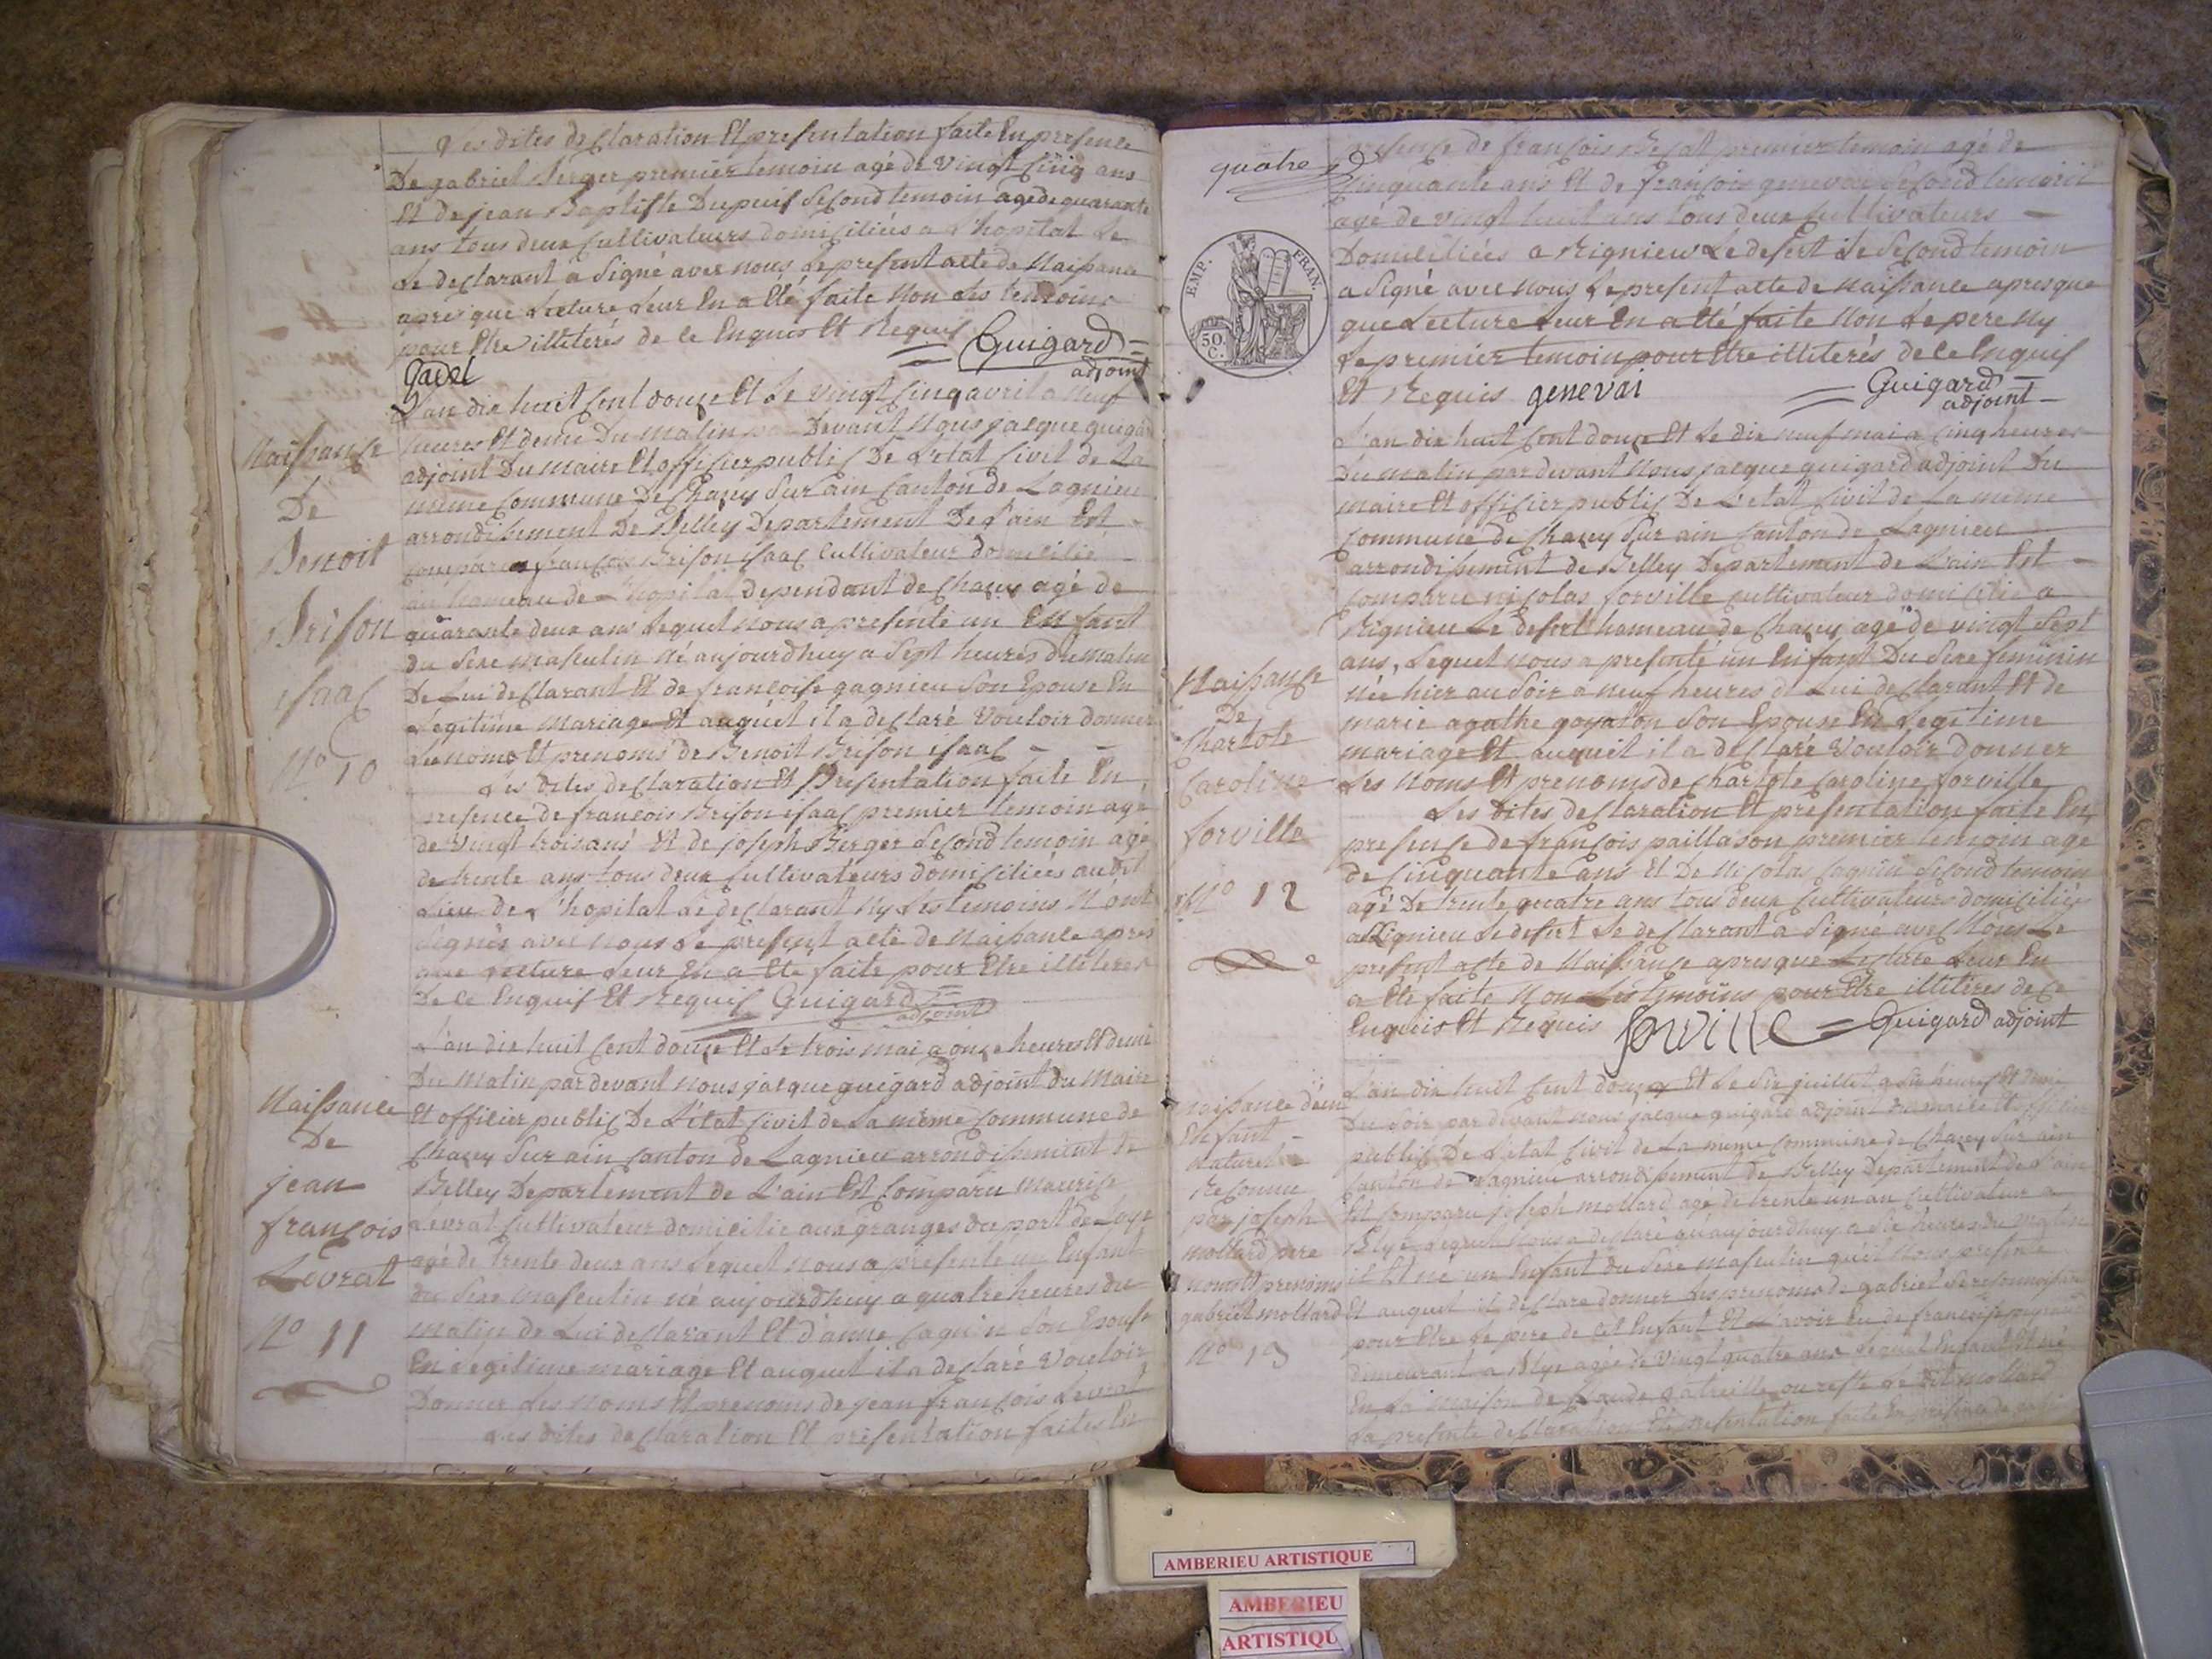 Les dites declaration Et presentation faite En presence
De gabriel Berger premier temoin agé de vingt Cinq ans
Et de jean Baptiste Dupuis Second temoin agé de quarante
ans tous deux Cultivateurs domiciliées a L'hopital Le
Le declarant a Signé avec nous Le present acte de Naissance
apres que Lecture Leur En a Eté faite Non Les temoins
pour Etre illiterés de ce Enquis Et Requis
Guigard
adjoint
L'an dix huit Cent douze Et Le vingt Cinq avril a Neuf
heures Et demie Du Matin Devant Nous jacque guigard
adjoint Du maire Et officier public De L'etat Civil de La
meme Commune De Chazey Sur ain Canton de Lagnieu
arrondissement De Belley Departement De L'ain Est
Comparu françois Brison isaac Cultivateur domicilié
au hameau de L'hopital dependant de Chazey agé de
quarante deux ans Lequel Nous a presenté un Enfant
du Sexe masculin Né aujourdhuy a Sept heures du Matin
De Lui declarant Et de françoise gagnieu Son Epouse En
Legitime Mariage Et auquel il a declaré Vouloir donner
Les noms Et prenoms de Benoit Brison isaac
Naissance
De
Benoit
Brison
isaac
No 10
Les dites declaration Et Presentation faite En
presence de françois Brison isaac premier temoin agé
de vingt trois ans Et de joseph Berger Second temoin agé
de trente ans tous deux Cultivateurs domiciliées audit
Lieu de L'hopital Le declarant Ny Les temoins N'ont
Signés avec nous Le present acte de Naissance apres
que Lecture Leur En a Eté faite pour Etre illiteres
De ce Enquis Et Requis Guigard
adjoint
L'an dix huit Cent douze Et Le trois mai a onze heures Et demie
Du Matin par devant Nous jacque guigard adjoint du Maire
Et officier public De L'etat Civil de La meme Commune de
Chazey Sur ain Canton de Lagnieu arrondissement de
Belley Departement de L'ain Est Comparu Maurice
Levrat Cultivateur domicilié aux granges du port de Loye
agé de trente deux ans Lequel Nous a presenté un Enfant
du Sexe Masculin né aujourdhuy a quatre heures du
Matin de Lui declarant Et d'anne Son Epouse
En Legitime mariage Et auquel il a declaré Vouloir
Donner Les noms Et prenoms de jean françois Levrat
Les dites declaration Et presentation faites En
Naissance
De
jean
françois
Levrat
No 11
quatre
EMP. FRAN.
50. C.
presence de françois premier temoin agé de
Cinquante ans Et de françois genevai Second temoin
agé de vingt huit ans tous deux Cultivateurs
Domiciliées a Rignieu Le desert Le Second temoin
a Signé avec nous Le present acte de Naissance apres que
que Lecture Leur En a Eté faite Non Le pere Ny
Le premier temoin pour Etre illiterés de ce Enquis
Et Requis genevai Guigard
adjoint
L'an dix huit Cent douze Et Le dix neuf mai a Cinq heures
Du matin par devant Nous jacque guigard adjoint Du
maire Et officier public De L'etat Civil de La meme
Commune de Chazey Sur ain Canton de Lagnieu
arrondissement de Belley Departement de L'ain Est
Comparu nicolas forville Cultivateur domicilié a
Rignieu Le desert hameau de Chazey agé de vingt Sept
ans, Lequel Nous a presenté un Enfant Du Sexe feminin
née hier au Soir a neuf heures de Lui declarant Et de
marie agathe goyaton Son Epouse En Legitime
mariage Et auquel il a declaré Vouloir donner
Les Noms Et prenoms de Charlote Caroline forville
Naissance
De
Charlote
Caroline
forville
No 12
Les dites declaration Et presentation faite En
presence de françois paillason premier temoin agé
de Cinquante ans Et De Nicolas Second temoin
agé De trente quatre ans tous deux Cultivateurs domiciliés
a Rignieu Le desert Le declarant a Signé avec Nous Le
present acte de Naissance apres que Lecture Leur En
a Eté faite Non Les temoins pour Etre illitéres de ce
Enquis Et Requis forville Guigard adjoint
L'an dix huit Cent douze Et Le Six juillet a Six heures Et demie
Du Soir par devant nous jacque guigard adjoint Du maire Et officier
public De L'etat Civil de La meme Commune de Chazey Sur ain
Canton de Lagnieu arrondissement de Belley Departement de L'ain
Est Comparu joseph mollard agé de trente un an Cultivateur a
Blye Lequel Nous a declaré qu'aujourdhuy a heures du Matin
il Est né un Enfant du Sexe Masculin qu'il Nous presente
Et auquel il declare donner Les prenoms de gabriel Se reconnoissant
pour Etre Le pere de Cet Enfant Et L'avoir Eu de françoise
demeurant a Blye agée de Vingt quatre ans Lequel Enfant Est né
En La Maison de Claude ou reste Le dit mollard
La presente declaration Et presentation faite En presence de
Naissance d'un
Enfant
Naturel
Reconnu
par joseph
Mollard pere
nom Et prenoms
gabriel mollard
No 13
AMBERIEU ARTISTIQUE
AMBERIEU
ARTISTIQU